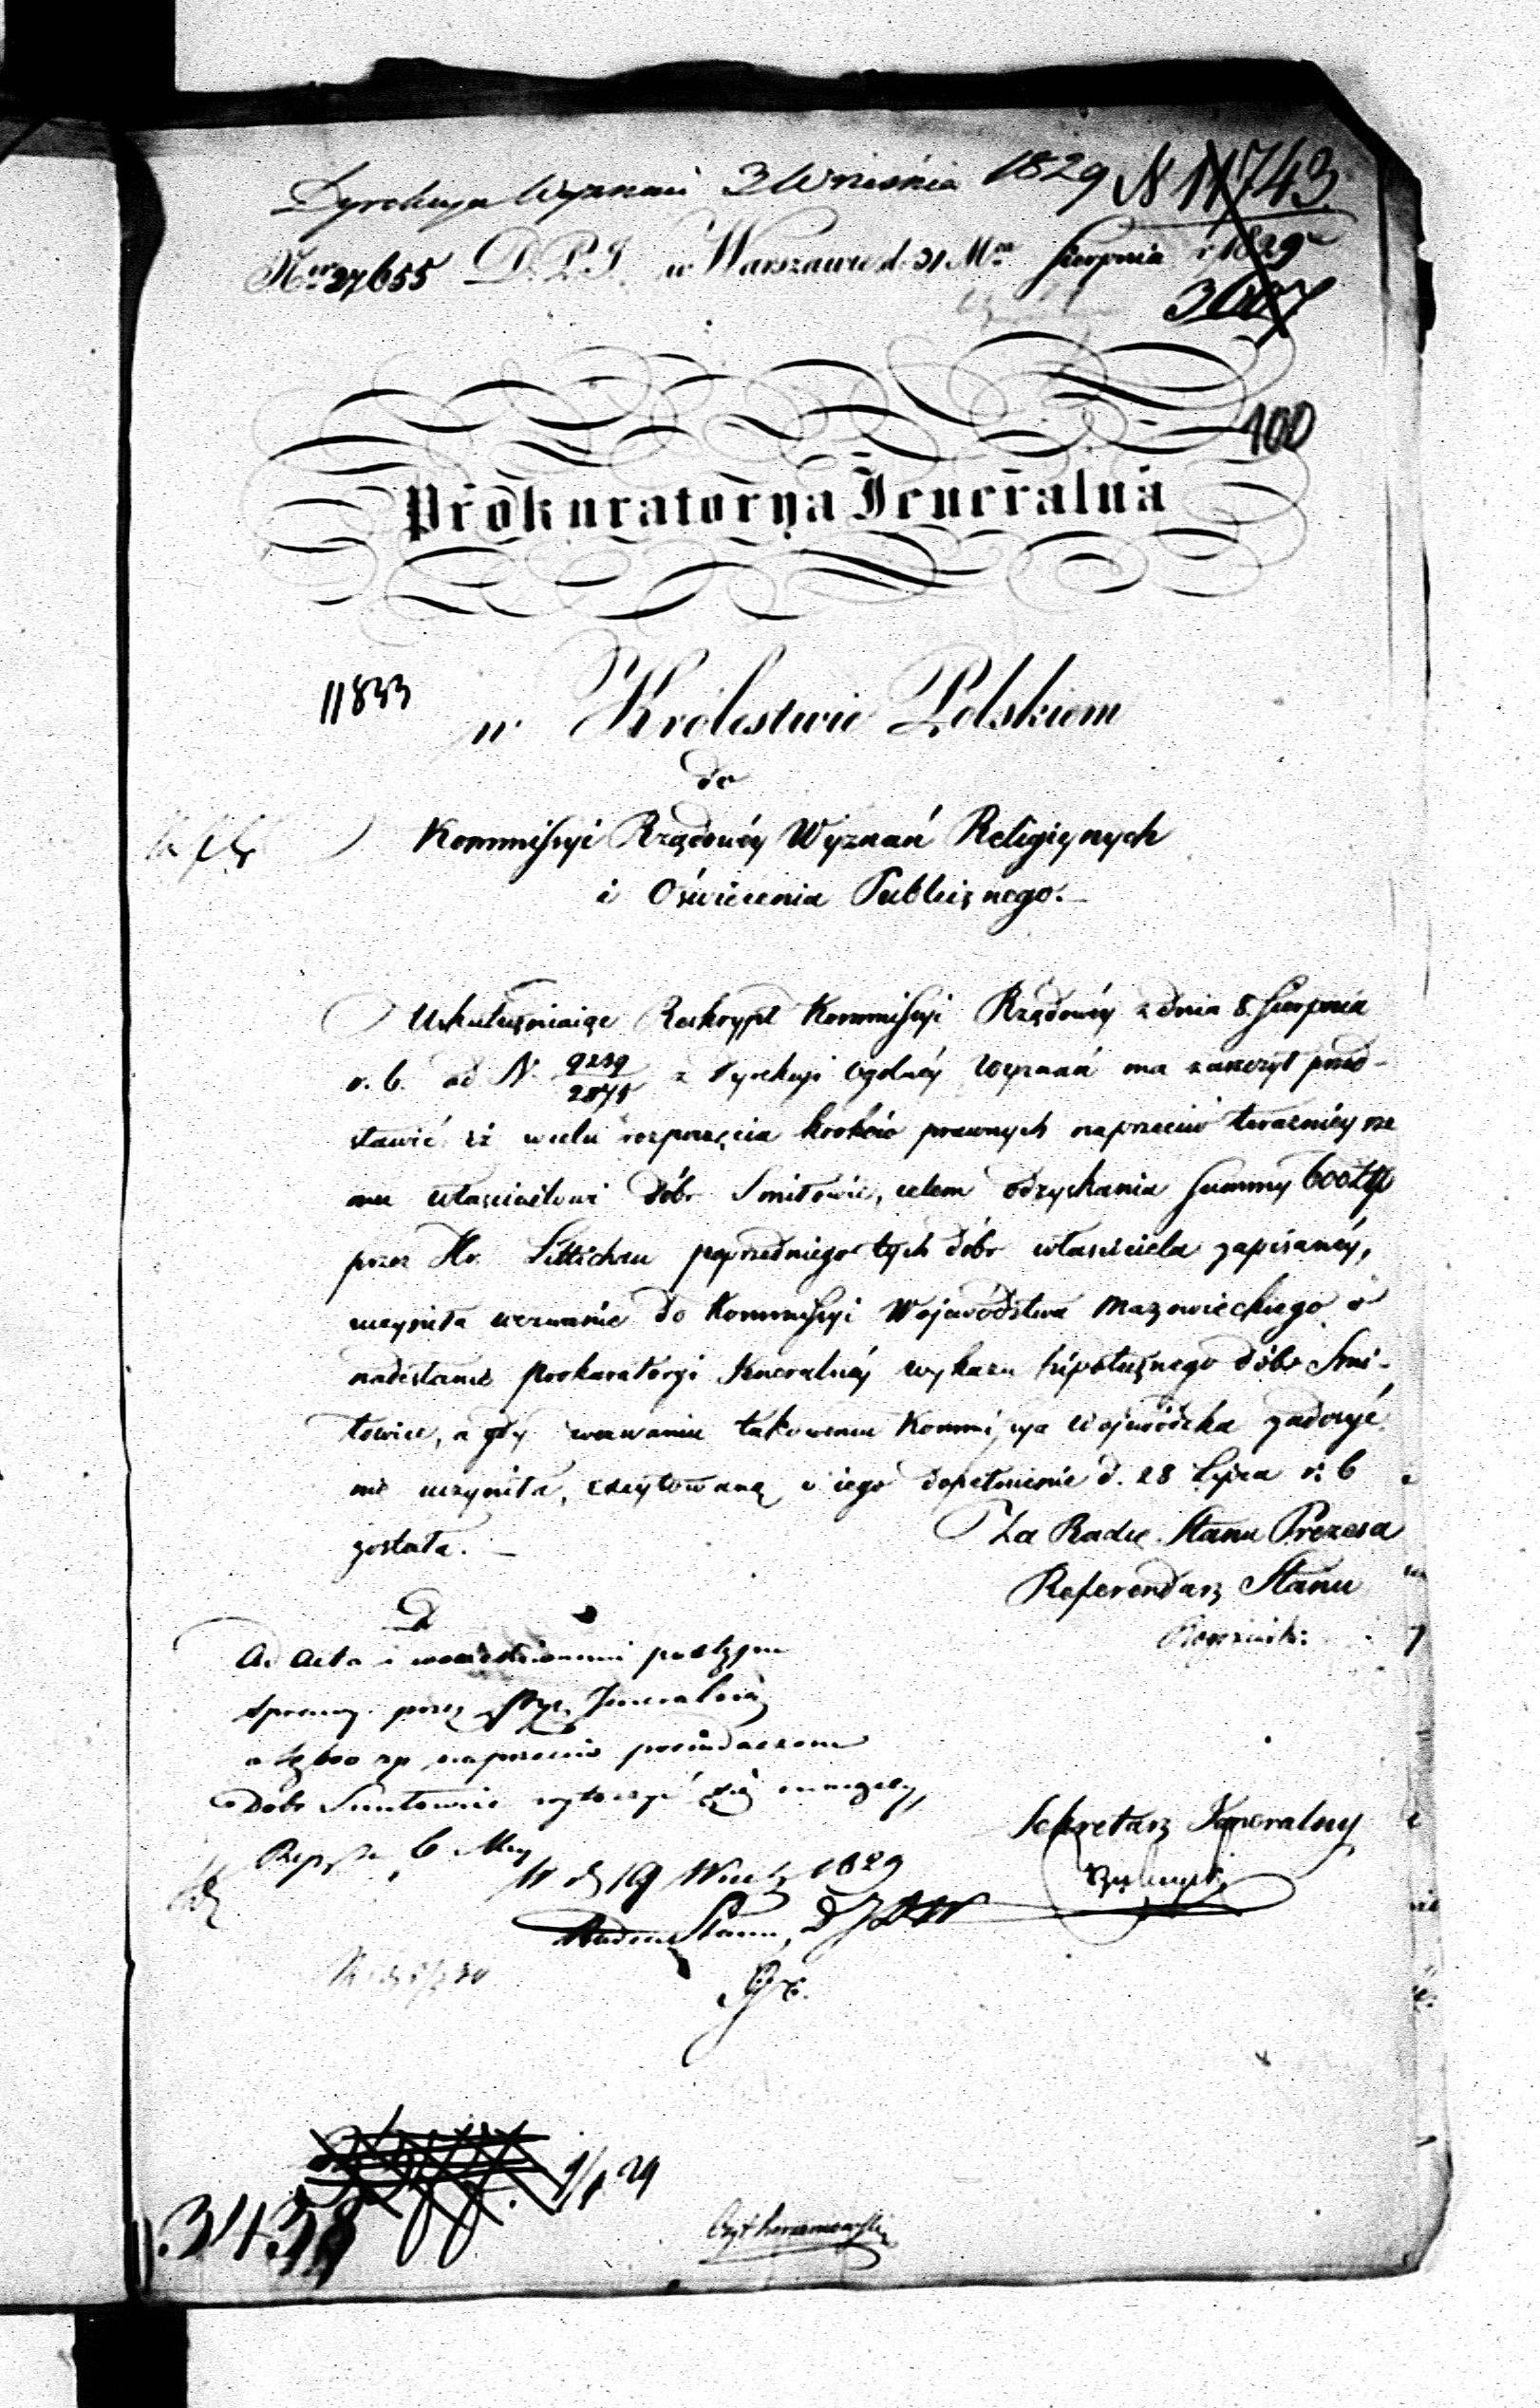 Dyrekcya Wyznań 3 Września 1829 N 11743
Nr 27655 D. P. J. w Warszawie d. 31 Mca Sierpnia r. 1829
3007
100
Prokuratorya Jeneralna
11833
w Królestwie Polskiem
do
Kommissyi Rządowéy Wyznań Religiynych
i Oświecenia Publicznego.
Uskuteczniaiąc Reskrypt Kommissyi Rządowéy z dnia 8 Sierpnia
r. b. ad N. 9239/2875 z Dyrekcyi Ogólnéy Wyznań ma zaszczyt przed-
stawić iż w celu rozpoczęcia kroków prawnych naprzeciw teraznieysze
mu właścicielowi dóbr Smiłowic, celem odzyskania Summy 600 Złp
przez Hr. poprzedniego tych dóbr właściciela zapisanéy,
uczyniła wezwanie do Kommissyi Województwa Mazowieckiego o
nadesłanie Prokuratoryi Jeneralnéy wykazu hipotecznego dóbr Smi-
łowice, a gdy wezwaniu takowemu Kommissya Wojewódzka zadosyć
nie uczyniła, excytowaną o iego dopełnienie d. 28 Lipca r. b
została.
Za Radcę Stanu Prezesa
Referendarz Stanu
Ad Acta i
sprawy przez Jeneralną
600 zp naprzeciw posiadaczom
Dobr Smiłowice
Sekretarz Jeneralny
19 1829
Radca Stanu,
3438
29